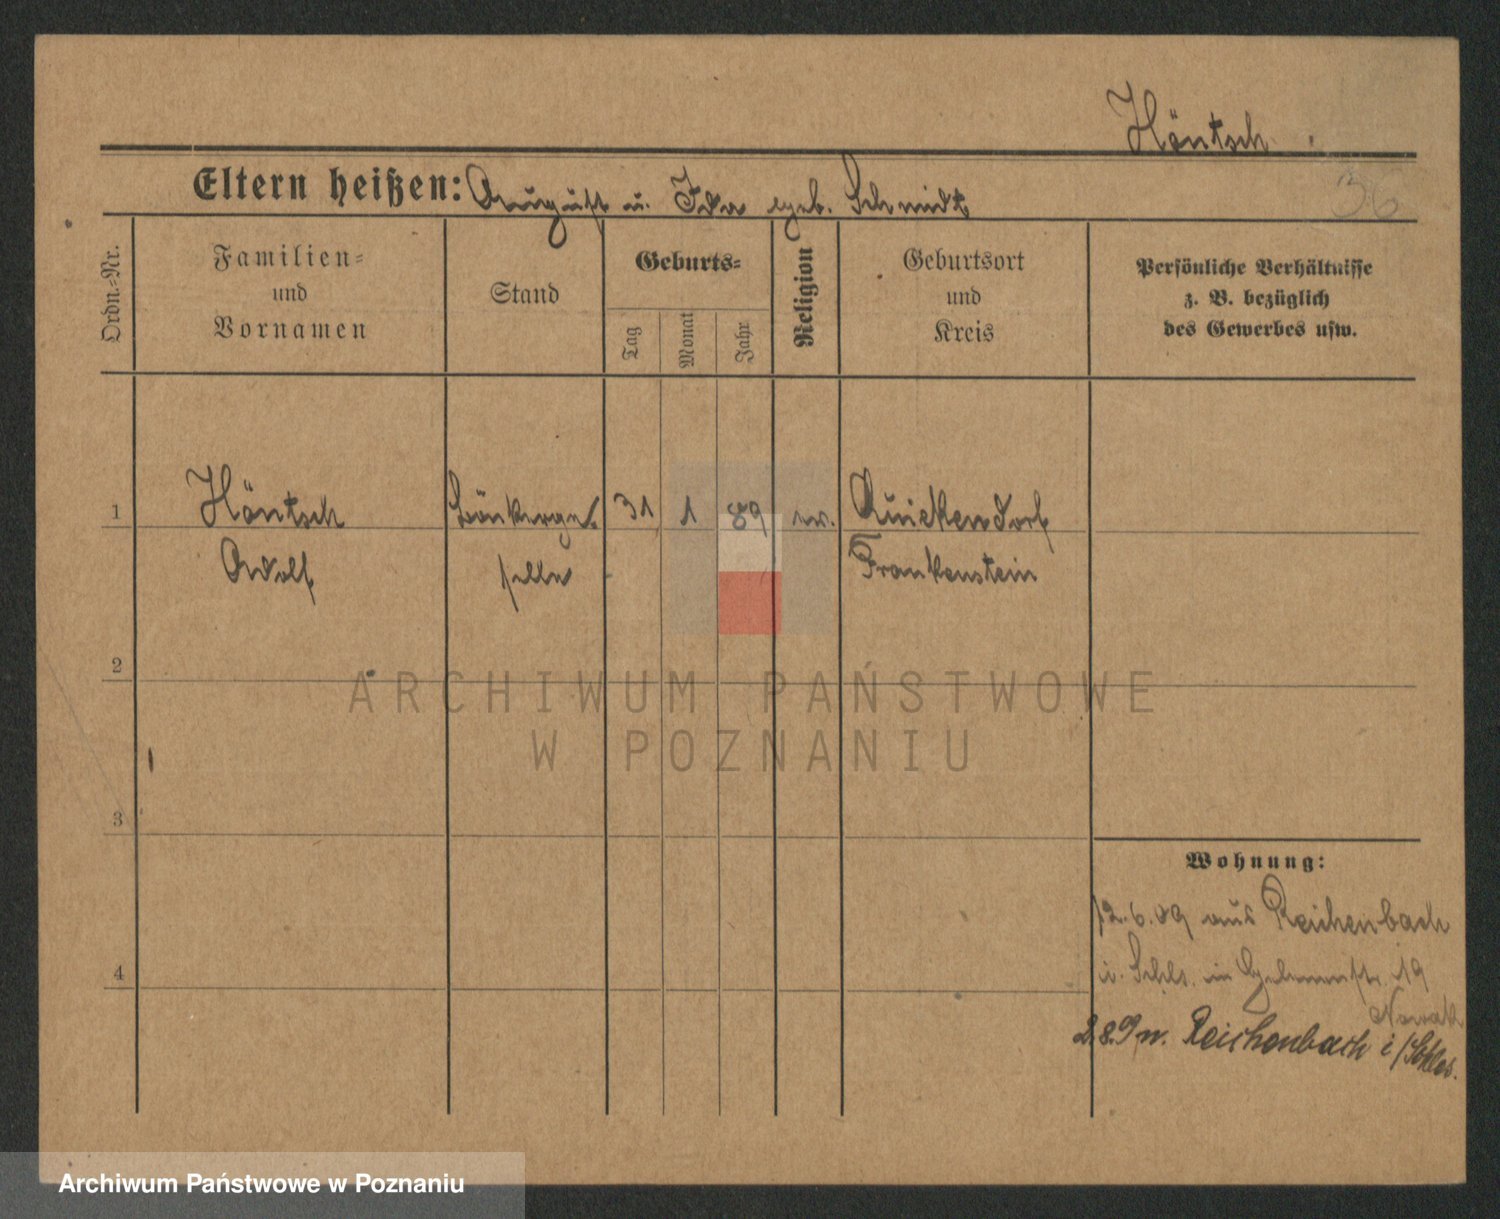 Häntsch.
36
Eltern heißen: August u. Ida geb. Schmidt
Ordn.-Nr.
Familien-
und
Vornamen
Stand
Geburts-
Tag
Monat
Jahr
Religion
Geburtsort
und
Kreis
Persönliche Verhältnisse
z. B. bezüglich
des Gewerbes usw.
1
Häntsch
31 1 89
Quickendorf
Adolf
selle
Frankenstein
2
ARCHIWUM PAŃSTWOWE
W POZNANIU
3
Wohnung:
12.6.09 aus Reichenbach
i. Schls. in 19
Nowak
4
2.8.9 n. Reichenbach i/Schles.
Archiwum Państwowe w Poznaniu